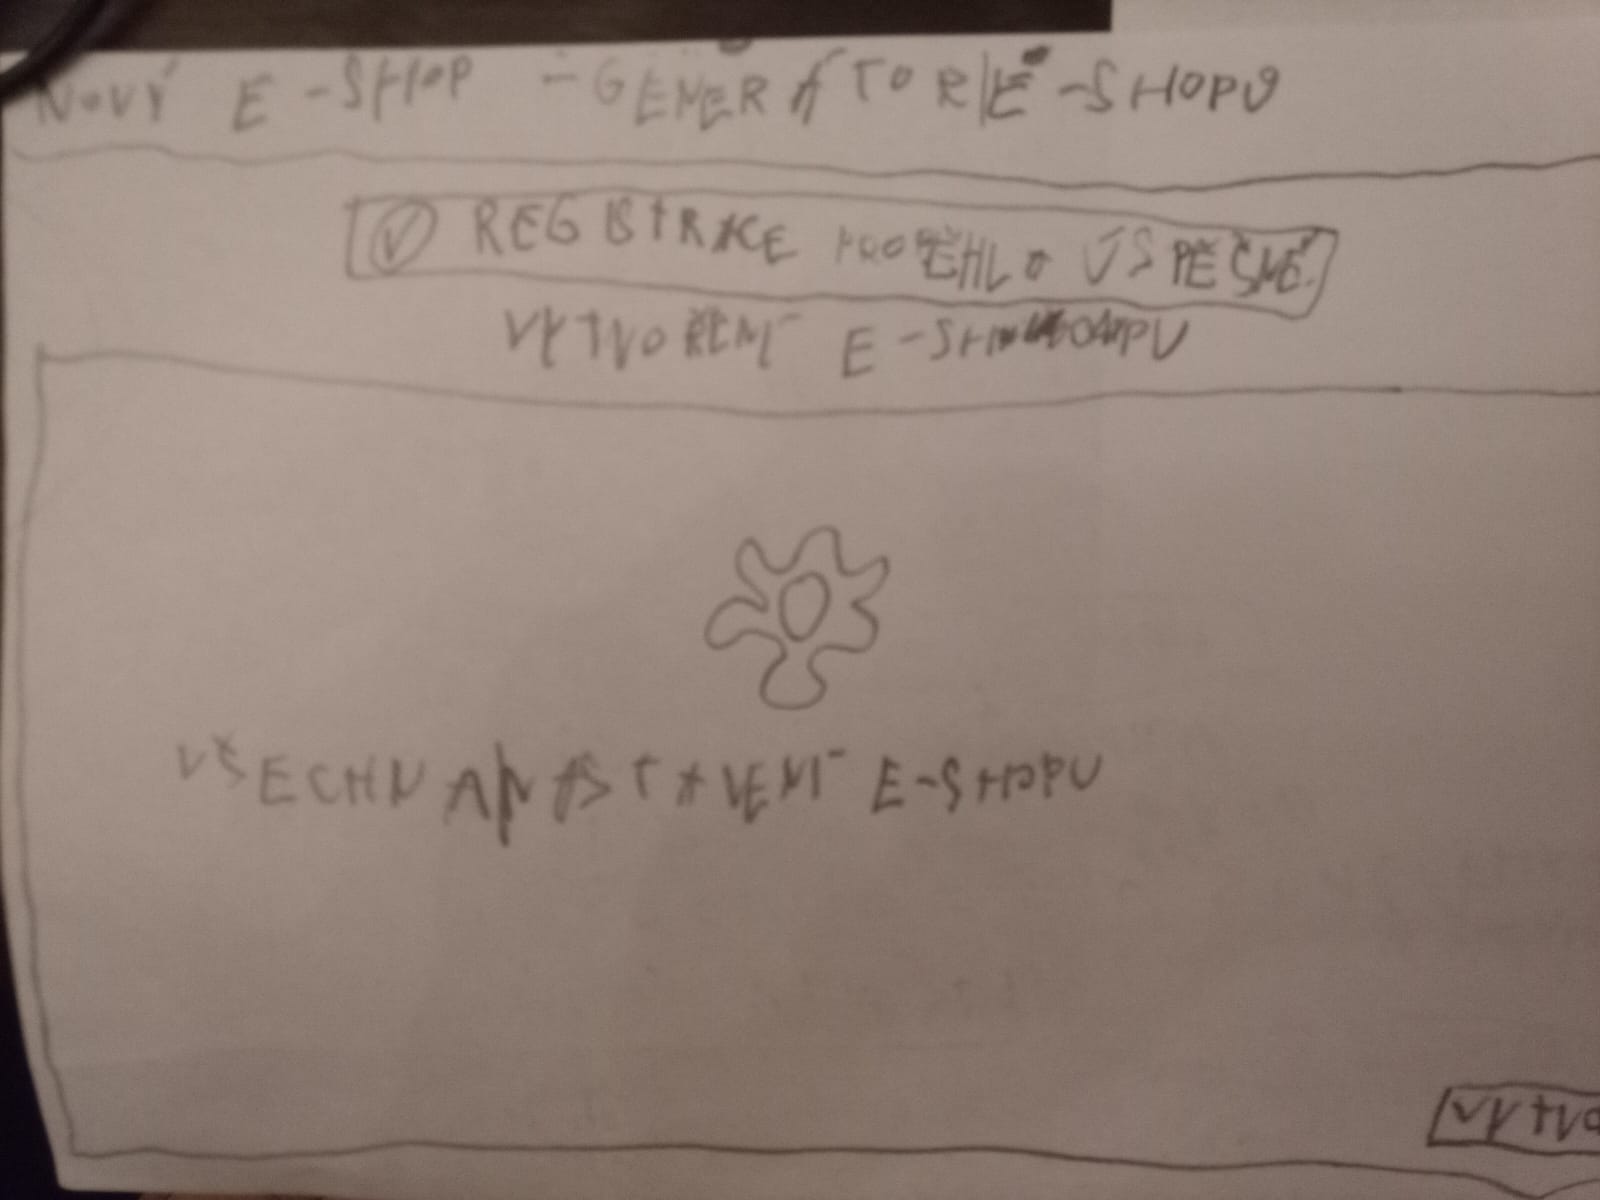 NOVÝ E-SHOP - GENERÁTOR E-SHOPŮ
REGISTRACE PROBĚHLA ÚSPĚŠNĚ.
VYTVOŘENÍ E-SHOPU
VŠECHNA NASTAVENÍ E-SHOPU